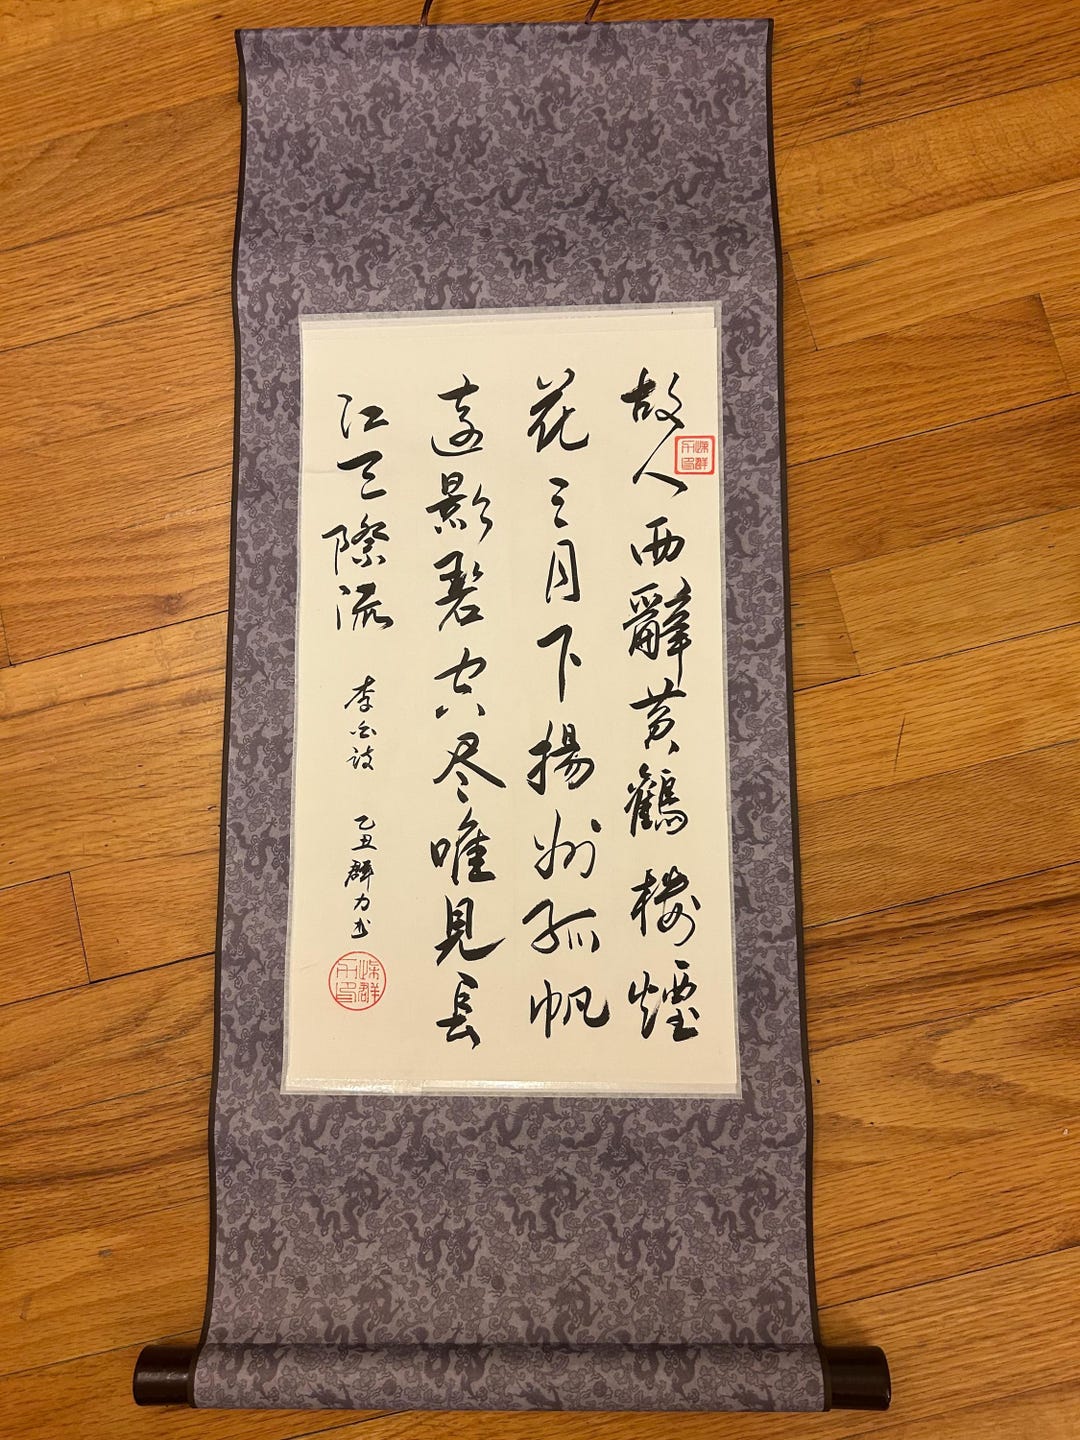 故人西辭黄鶴楼煙
花三月下揚州孤帆
遠影碧空尽唯見長
江天際流 李白詩 乙丑群力书